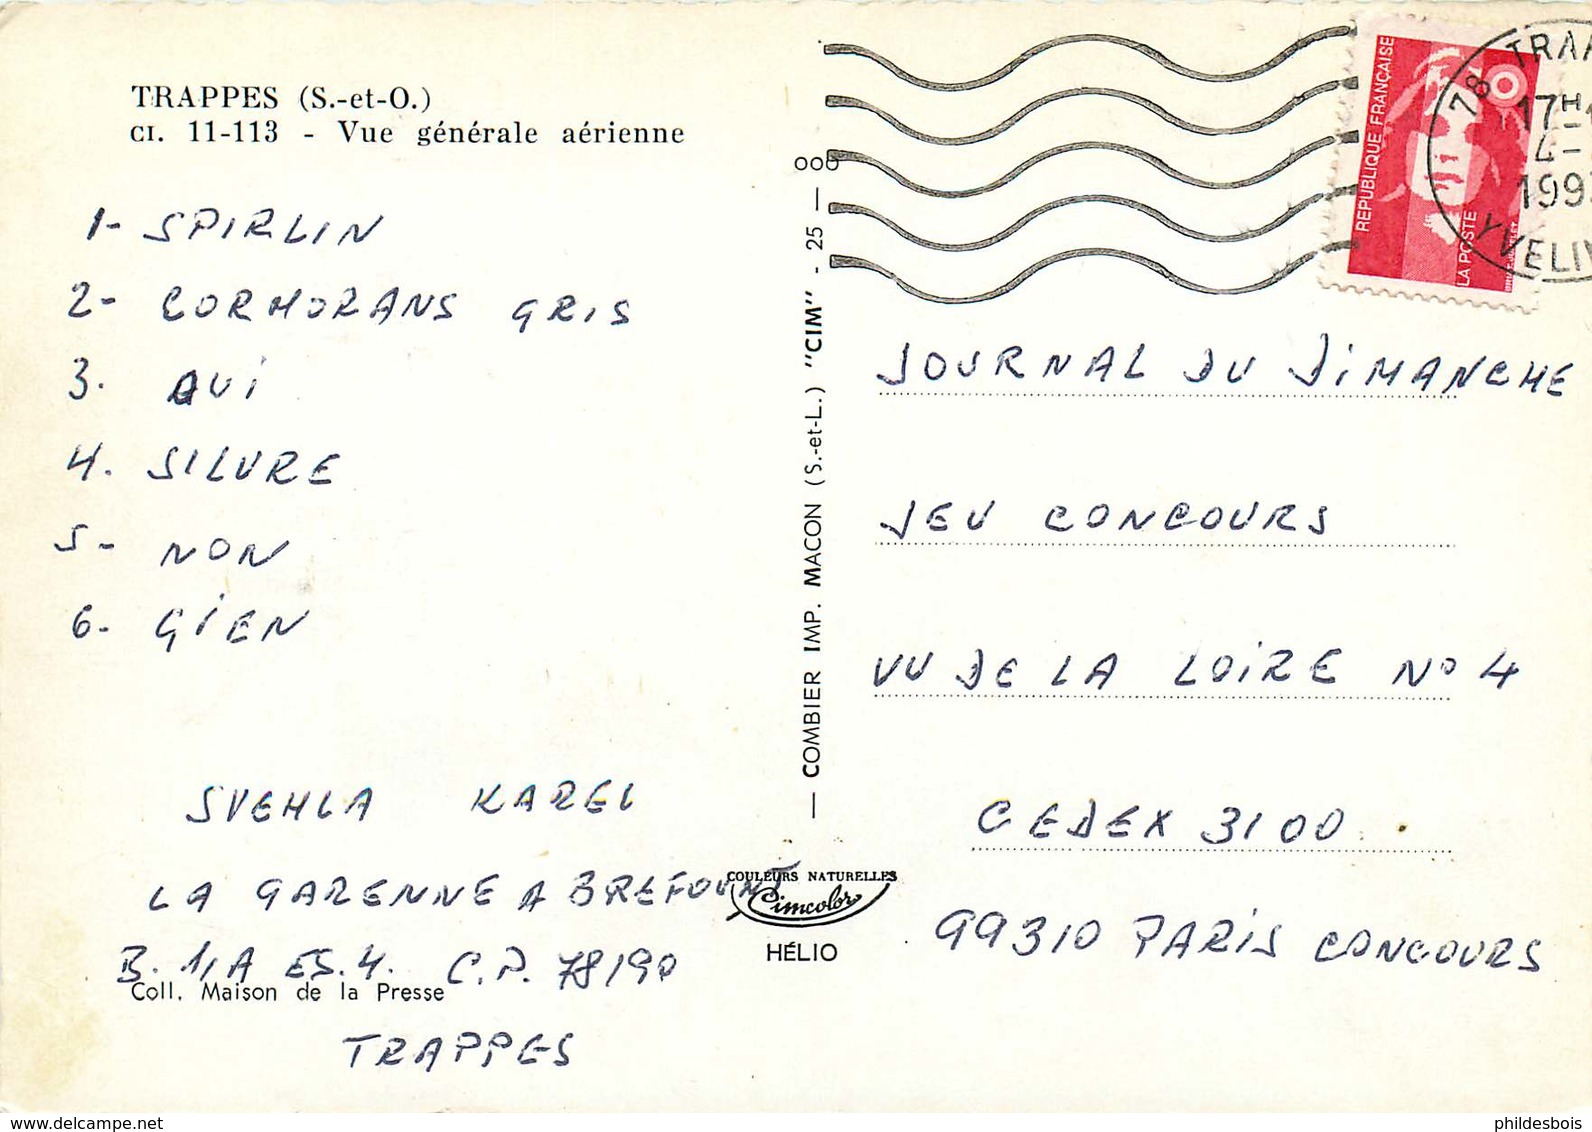 TRAPPES (S.-et-O.)
CI. 11-113 - Vue générale aérienne
1- SPIRLIN
2- CORMORANS GRIS
3. OUI
4. SILURE
5- NON
6- GIEN
SVEHLA KAREL
LA GARENNE A BREFOUNT
B. 1/A ES.4. C.P. 78190
Coll. Maison de la Presse
TRAPPES
— COMBIER IMP. MACON (S.-et-L.) "CIM" - 25 — 000
COULEURS NATURELLES
Cimcolor
HÉLIO
REPUBLIQUE FRANÇAISE
LA POSTE
78 TRAP
17H-
4-
199
YVELIN
JOURNAL DU DIMANCHE
JEU CONCOURS
VU DE LA LOIRE No 4
CEDEX 3100
99310 PARIS CONCOURS
delcampe.net
phildesbois